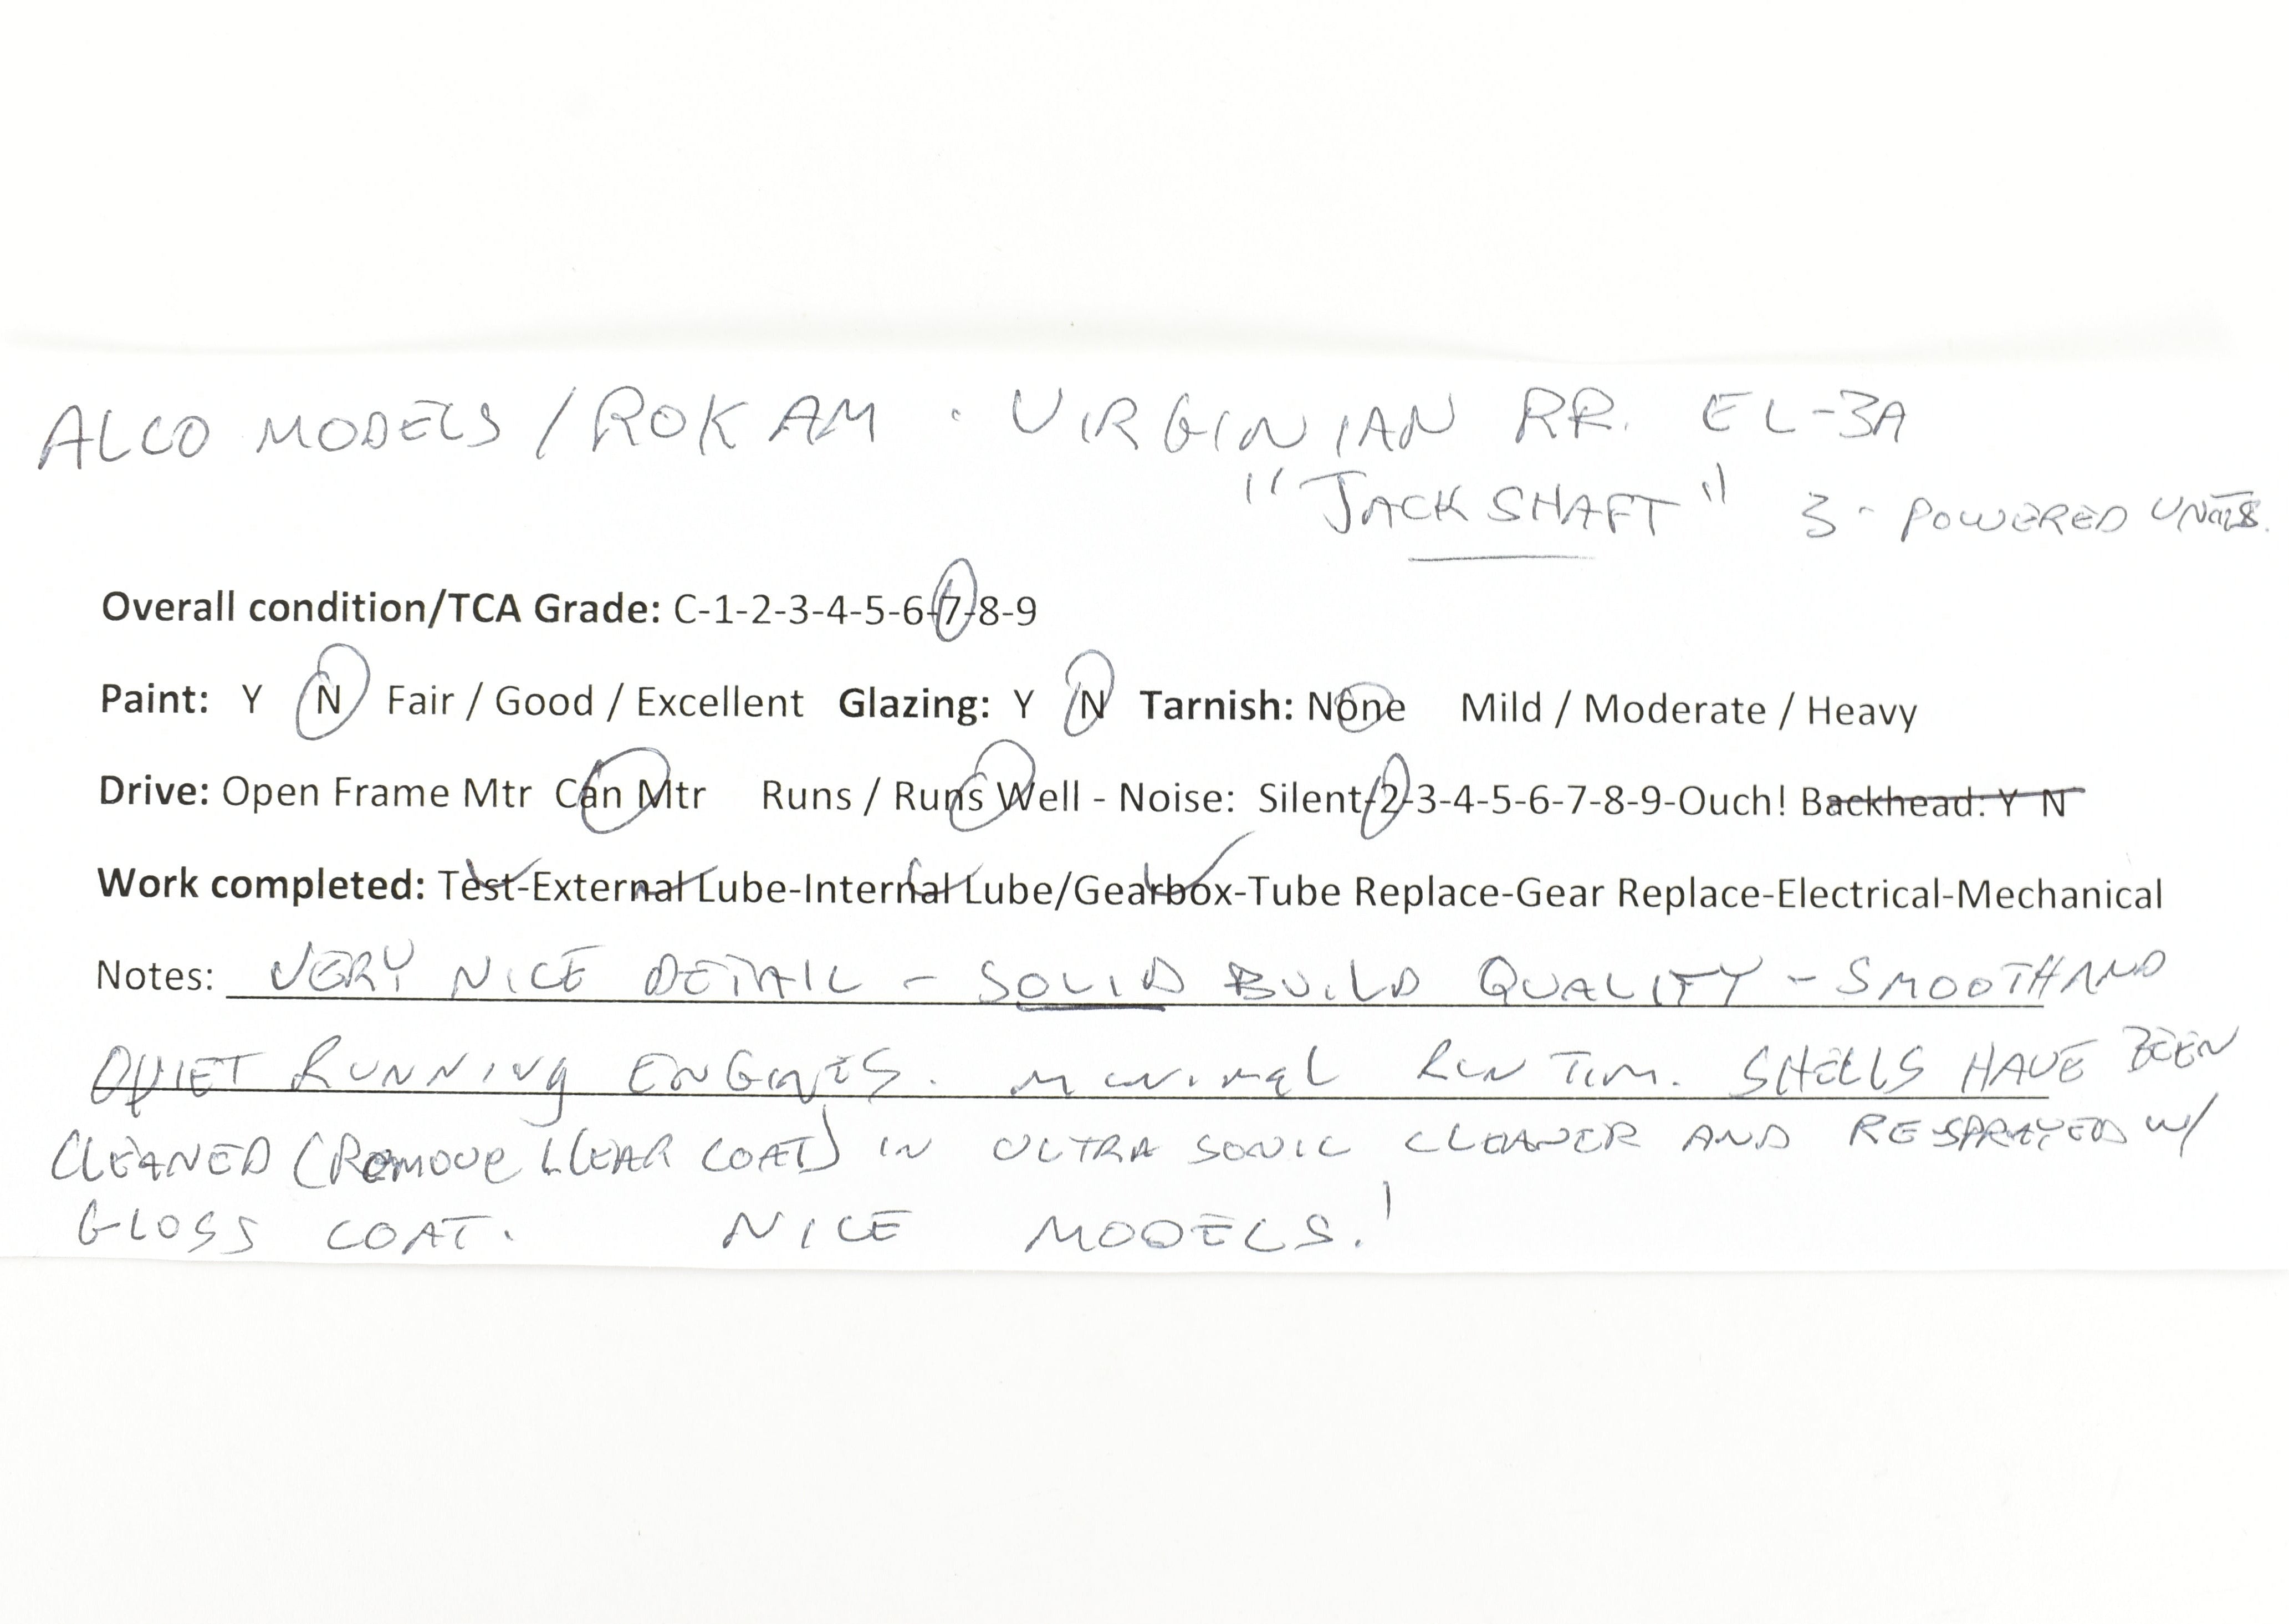 ALCO MODELS / ROK AM · VIRGINIAN RR. EL-3A
"JACK SHAFT" 3 - POWERED UNITS.
Overall condition/TCA Grade: C-1-2-3-4-5-6-7-8-9
Paint: Y N Fair / Good / Excellent Glazing: Y N Tarnish: None Mild / Moderate / Heavy
Drive: Open Frame Mtr Can Mtr Runs / Runs Well - Noise: Silent-2-3-4-5-6-7-8-9-Ouch! Backhead: Y N
Work completed: Test-External Lube-Internal Lube/Gearbox-Tube Replace-Gear Replace-Electrical-Mechanical
Notes: VERY NICE DETAIL - SOLID BUILD QUALITY - SMOOTH AND
QUIET RUNNING ENGINES. MINIMAL RUN TIM. SHELLS HAVE BEEN
CLEANED (REMOVE CLEAR COAT) IN ULTRA SONIC CLEANER AND RESPRAYED W/
GLOSS COAT. NICE MODELS.!